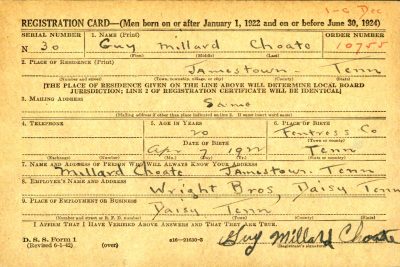 1-C Dec
REGISTRATION CARD—(Men born on or after January 1, 1922 and on or before June 30, 1924)
SERIAL NUMBER 1. NAME (Print) ORDER NUMBER
N 30 Guy Millard Choate 10755
(First) (Middle) (Last)
2. PLACE OF RESIDENCE (Print)
Jamestown Tenn
(Number and street) (Town, township, village, or city) (County) (State)
[THE PLACE OF RESIDENCE GIVEN ON THE LINE ABOVE WILL DETERMINE LOCAL BOARD
JURISDICTION; LINE 2 OF REGISTRATION CERTIFICATE WILL BE IDENTICAL]
3. MAILING ADDRESS
Same
[Mailing address if other than place indicated on line 2. If same insert word same]
4. TELEPHONE 5. AGE IN YEARS 6. PLACE OF BIRTH
20 Fentress Co
DATE OF BIRTH (Town or county)
Apr 7 1922 Tenn
(Exchange) (Number) (Mo.) (Day) (Yr.) (State or country)
7. NAME AND ADDRESS OF PERSON WHO WILL ALWAYS KNOW YOUR ADDRESS
Millard Choate Jamestown Tenn
8. EMPLOYER'S NAME AND ADDRESS
Wright Bros, Daisy Tenn
9. PLACE OF EMPLOYMENT OR BUSINESS
Daisy Tenn
(Number and street or R. F. D. number) (Town) (County) (State)
I AFFIRM THAT I HAVE VERIFIED ABOVE ANSWERS AND THAT THEY ARE TRUE.
D. S. S. Form 1
(Revised 6-1-42) (over) Guy Millard Choate
(Registrant's signature)